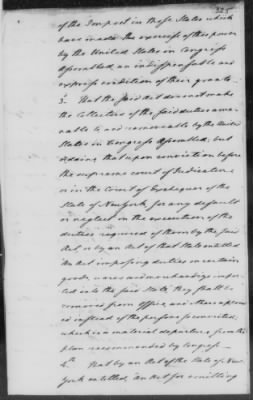 325
of the Impost in those States which
have made the exercise of this power
by the United States in Congress
Assembled, an indispensable and
express condition of their grants.
3.d That the said Act does not make
the Collectors of the said duties ame-
nable to and removeable by the United
States in Congress Assembled, but
ordains that upon conviction before
the supreme court of Judicature,
or in the Court of Exchequer of the
State of New York, for any default
or neglect in the execution of the
duties required of them by the said
Act, or by an Act of that State entitled
An Act imposing duties on certain
goods, wares and merchandize impor-
ted into the said State, they shall be
removed from Office, and others appoint-
ed instead of the persons so convicted,
which is a material departure from the
plan recommended by Congress
4.th That by an Act of the State of New
York entitled, An Act for emitting